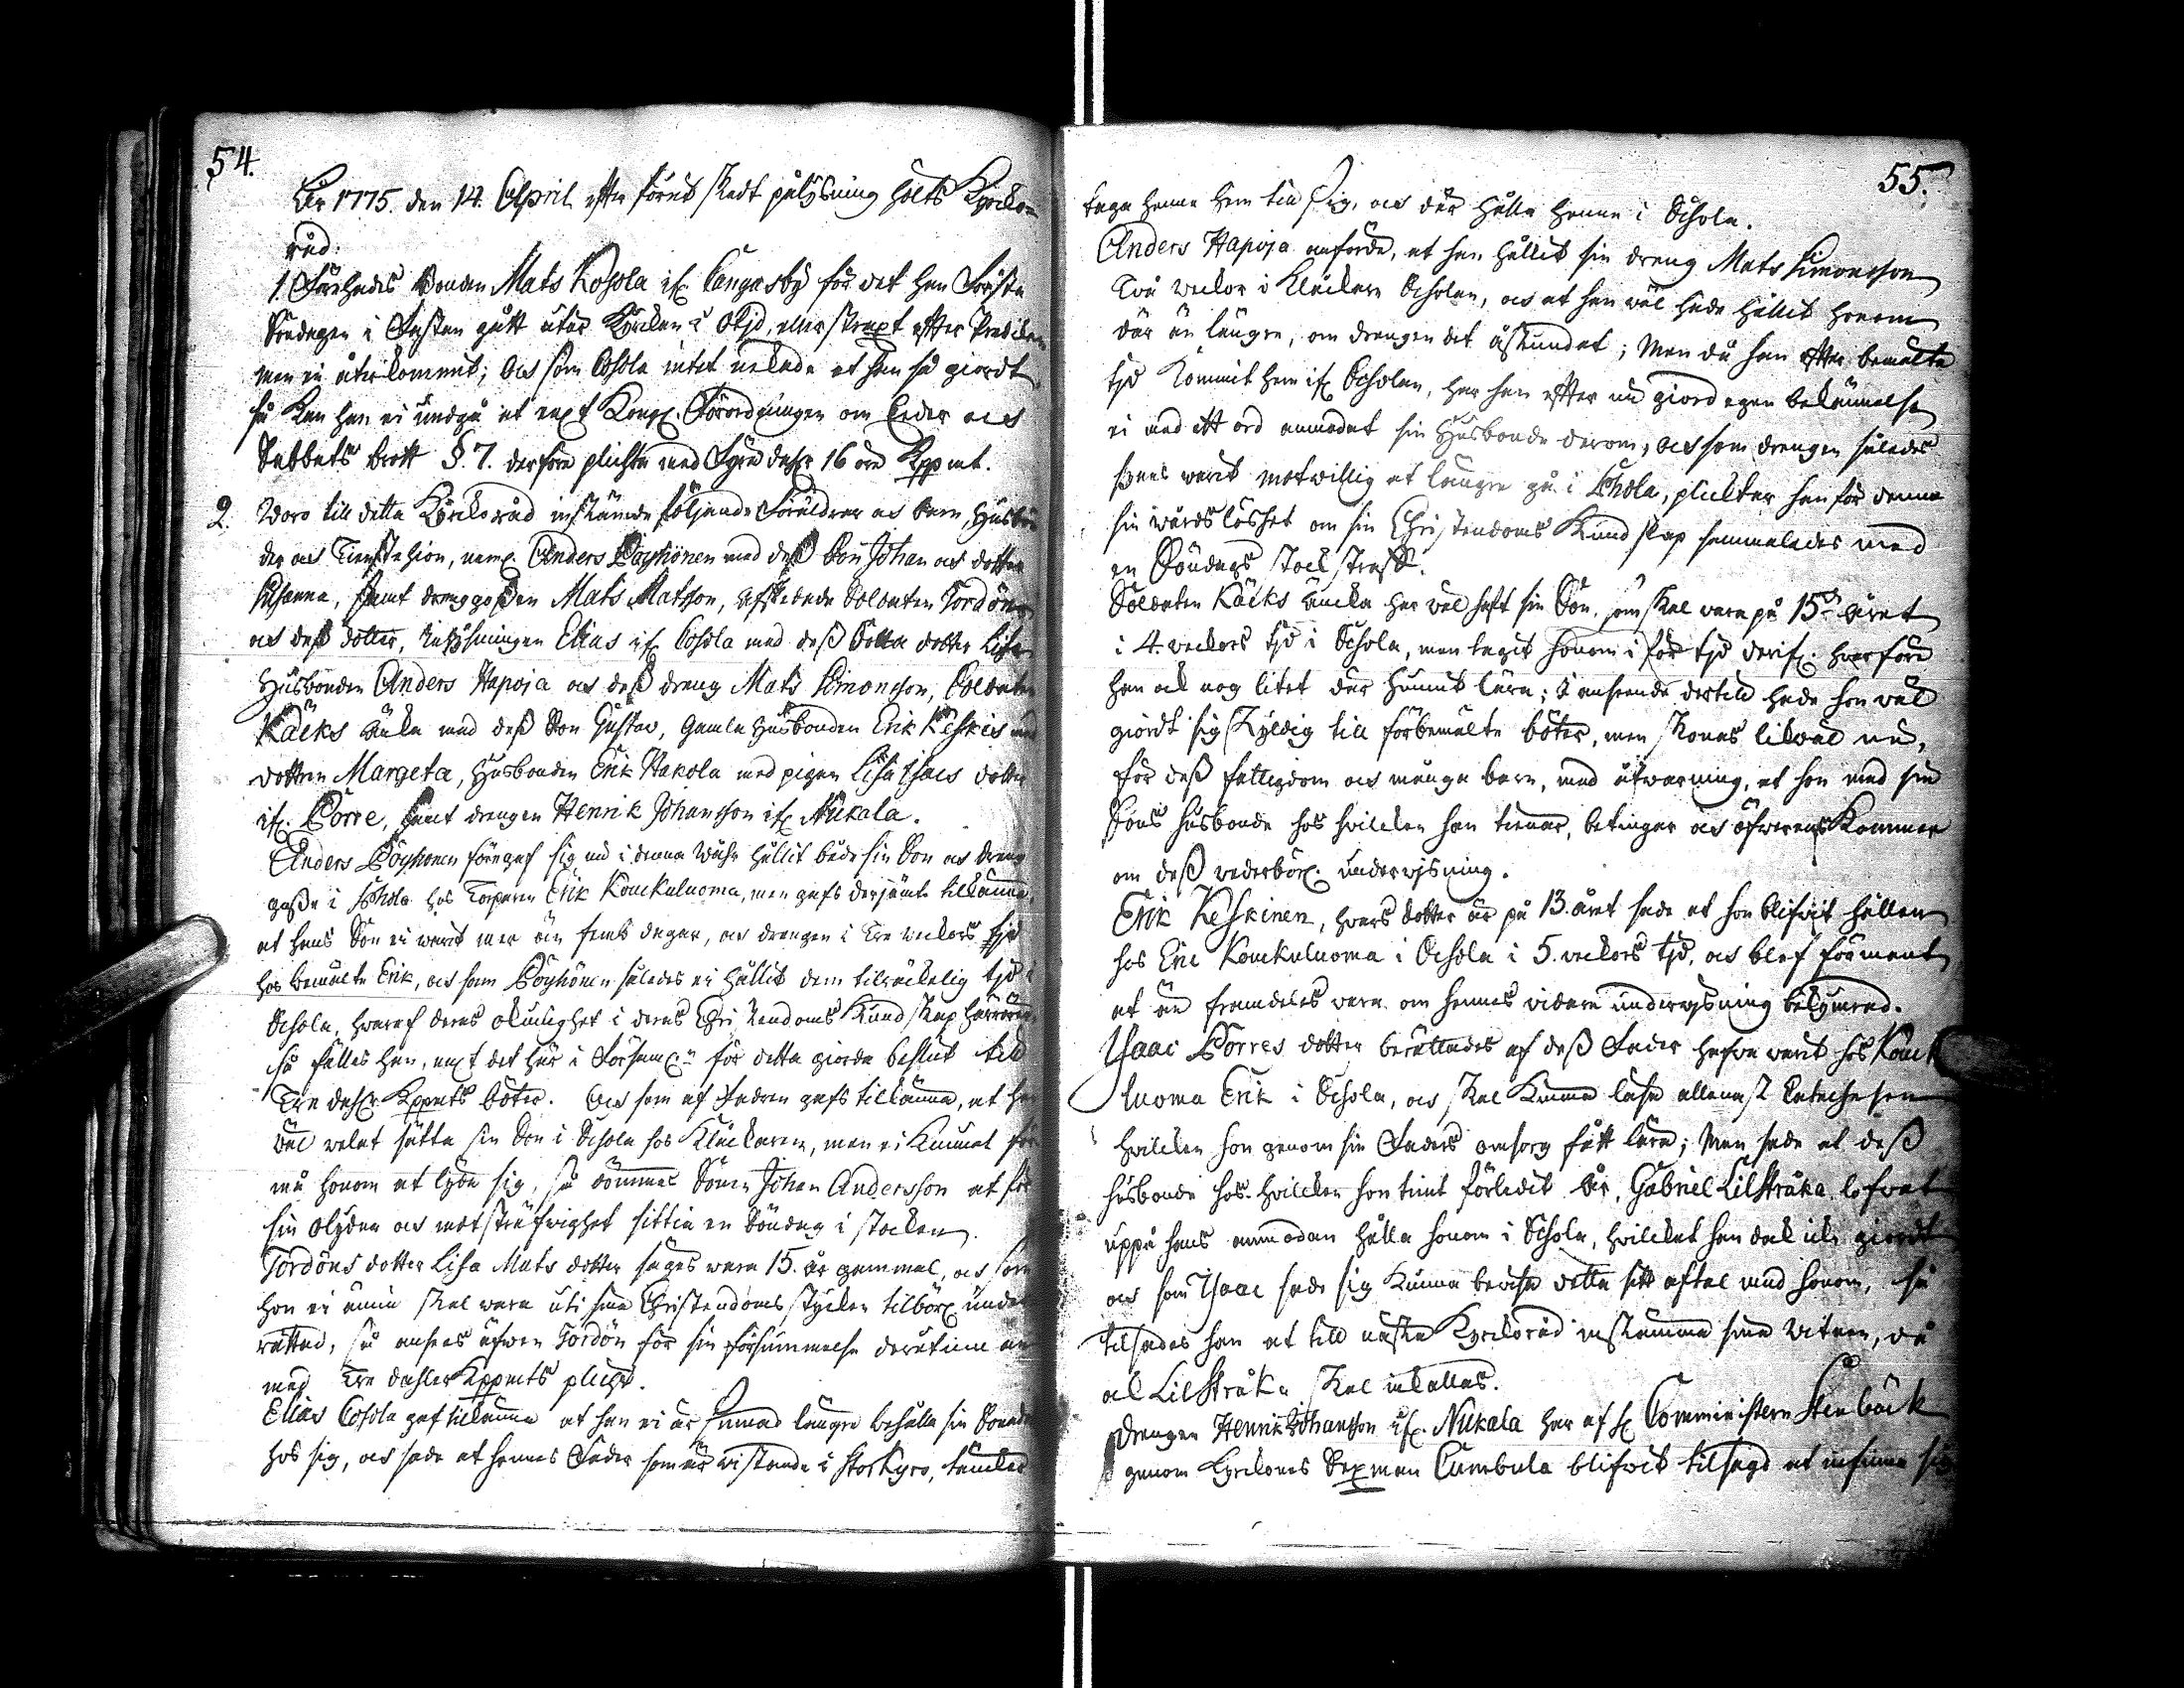 54.
År 1775. den 14. April efter förut skedt pålysning holts Kyrcko-
råd.
1. Förehades Bonden Mats Kosola if: Cangasby för det han Första
Söndagen i Fastan gått utur Kyrckan i Otijd, eller straxt efter Predikan
men ei återkommit; Och som Cosola intet nekade at han så giordt,
så kan han ei undgå at enl:t Kongl. Förordningen om Eeder och
Sabbats brott §. 7. derföre plichta med Fyra dahl:r 16 öre Kppmt.
2. Woro till detta Kyrckoråd instämde följande Föräldrar och barn, Husbön-
der och Tienstehion, neml: Anders Pöyhönen med dess Son Johan och dotter
Susanna, samt drenggossen Mats Matsson, afskedade Soldaten Tordön
och dess dotter, Inhysningen Elias if: Cosola med dess Dotter dotter Lisa
Husbonden Anders Hapoja och dess dreng Mats Simonsson, Soldaten
Käcks Enka med dess Son Gustav, Gamla Husbonden Erik Keskis med
dottren Margeta, Husbonden Erik Hakola med pigan Lisa Isacs dotter
if: Pörre, samt drengen Henrik Johansson if: Nukala.
Anders Pöyhönen föregaf sig nu i denna Wåhr hållit både sin Son och dreng
gosse i Schola hos Torparen Erik Kouckuluoma, men gafs derjämte tillkänna,
at hans Son ei warit mer än femb dagar, och drengen i Tre weckors tijd
hos bemälte Erik, och som Pöyhönen således ei hållit dem tilräckelig tijd i
Schola, hwaraf deras okunnighet i deras Christendoms Kundskap härrörer,
så fälles han, enl:t det här i Församl:n för detta giorda beslut till
Tre dahl:r Kppmts böter. Och som af Fadren gafs tillkänna, at han
wäl welat sätta sin Son i Schola hos Klåckaren, men ei kunnat för-
må honom at lyda sig, så dömmes Sonen Johan Andersson at för
sin olydna och motsträfwighet sittia en Söndag i stocken.
Tordöns dotter Lisa Mats dotter säges wara 15. år gammal, och som
hon ei ännu skal wara uti sina Christendoms stycken tilbörl: under-
rättad, så anses äfwen Tordön för sin försummelse derutinnan
med Tre dahler Kppmts plicht.
Elias Cosola gaf tillkänna at han ei är sinnad längre behålla sin
hos sig, och sade at hennes Fader som är wistande i Storkyro, täncker
55.
taga henne hem till sig, och där hålla henne i Schola.
Anders Hapoja anförde, at han hållit sin dreng Mats Simonsson
Två weckor i Klåckare Scholan, och at han wäl hade hållit honom
där än längre, om drengen det åstundat; Men då han efter bemälte
tijd kommit hem if: Scholan, har han efter nu giord egen bekännelse
ei med ett ord anmodat sin Husbonde derom, och som drengen således
synes warit motwillig at längre gå i Schola, plicktar han för denna
sin wårdslöshet om sin Christendoms Kundskap sammaledes med
en Söndags stockstraff.
Soldaten Käcks Encka har wäl haft sin Son, som skal wara på 15:de året
i 4. weckors tijd i Schola, men tagit honom i för tijd derif: hwarföre
han ock nog litet der hunnit lära; I anseende dertill hade hon wäl
giordt sig skyldig till förbemälte böter, men skonas likwäl nu,
för dess fattigdom och många barn, med åtwarning, at hon med sin
Sons husbonde hos hwilcken han tienar, betingar och öfwerenskommer
om dess wederbörl: underwjsning.
Erik Keskinen, hwars dotter är på 13. året sade at hon blifwit hållen
hos Eric Kouckuluoma i Schola i 5. weckors tijd, och blef förment
at än framdeles wara om hennes widare underwjsning bekymrad.
Ysaac Pörres dotter berättades af dess Fader hafwa warit hos Kouck
luoma Erik i Schola, och skal kunna läsa allenast Catechesen
hwilcken hon genom sin Faders omsorg fått lära; Men sade at dess
husbonde hos hwilcken hon tient förledit år, Gabriel Lilstråka lofwat
uppå hans anmodan hålla honom i Schola, hwilcket han dock icke giordt
och som Ysaac sade sig kunna bewisa detta sitt aftal med honom, så
tilsades han at till nästa Kyrckoråd instämma sina witnen, då
ock Lilstråka skal inkallas.
Drengen Henrik Johansson if: Nukala har af h: Comministern Stenbäck
genom Kyrckones Sexman Cumbula blifwit tilsagd at infinna sig